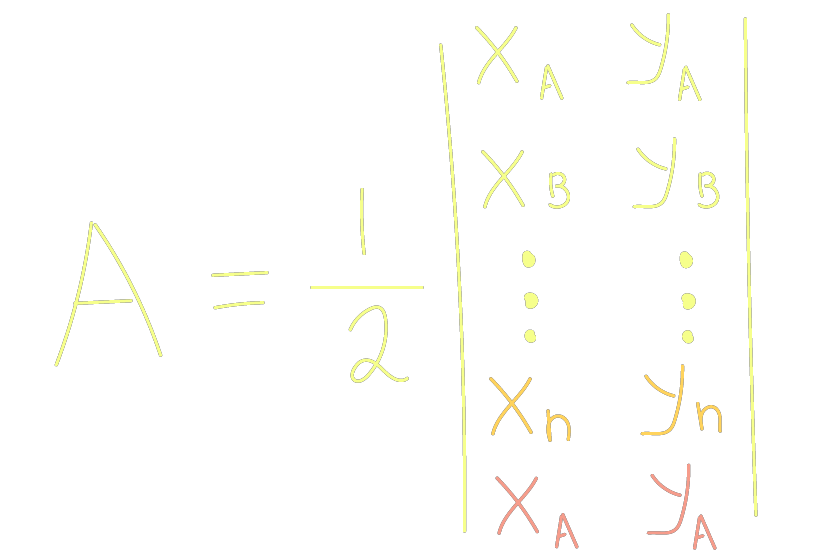 A = 1/2 | x_A y_A
x_B y_B
⋮ ⋮
x_n y_n
x_A y_A |